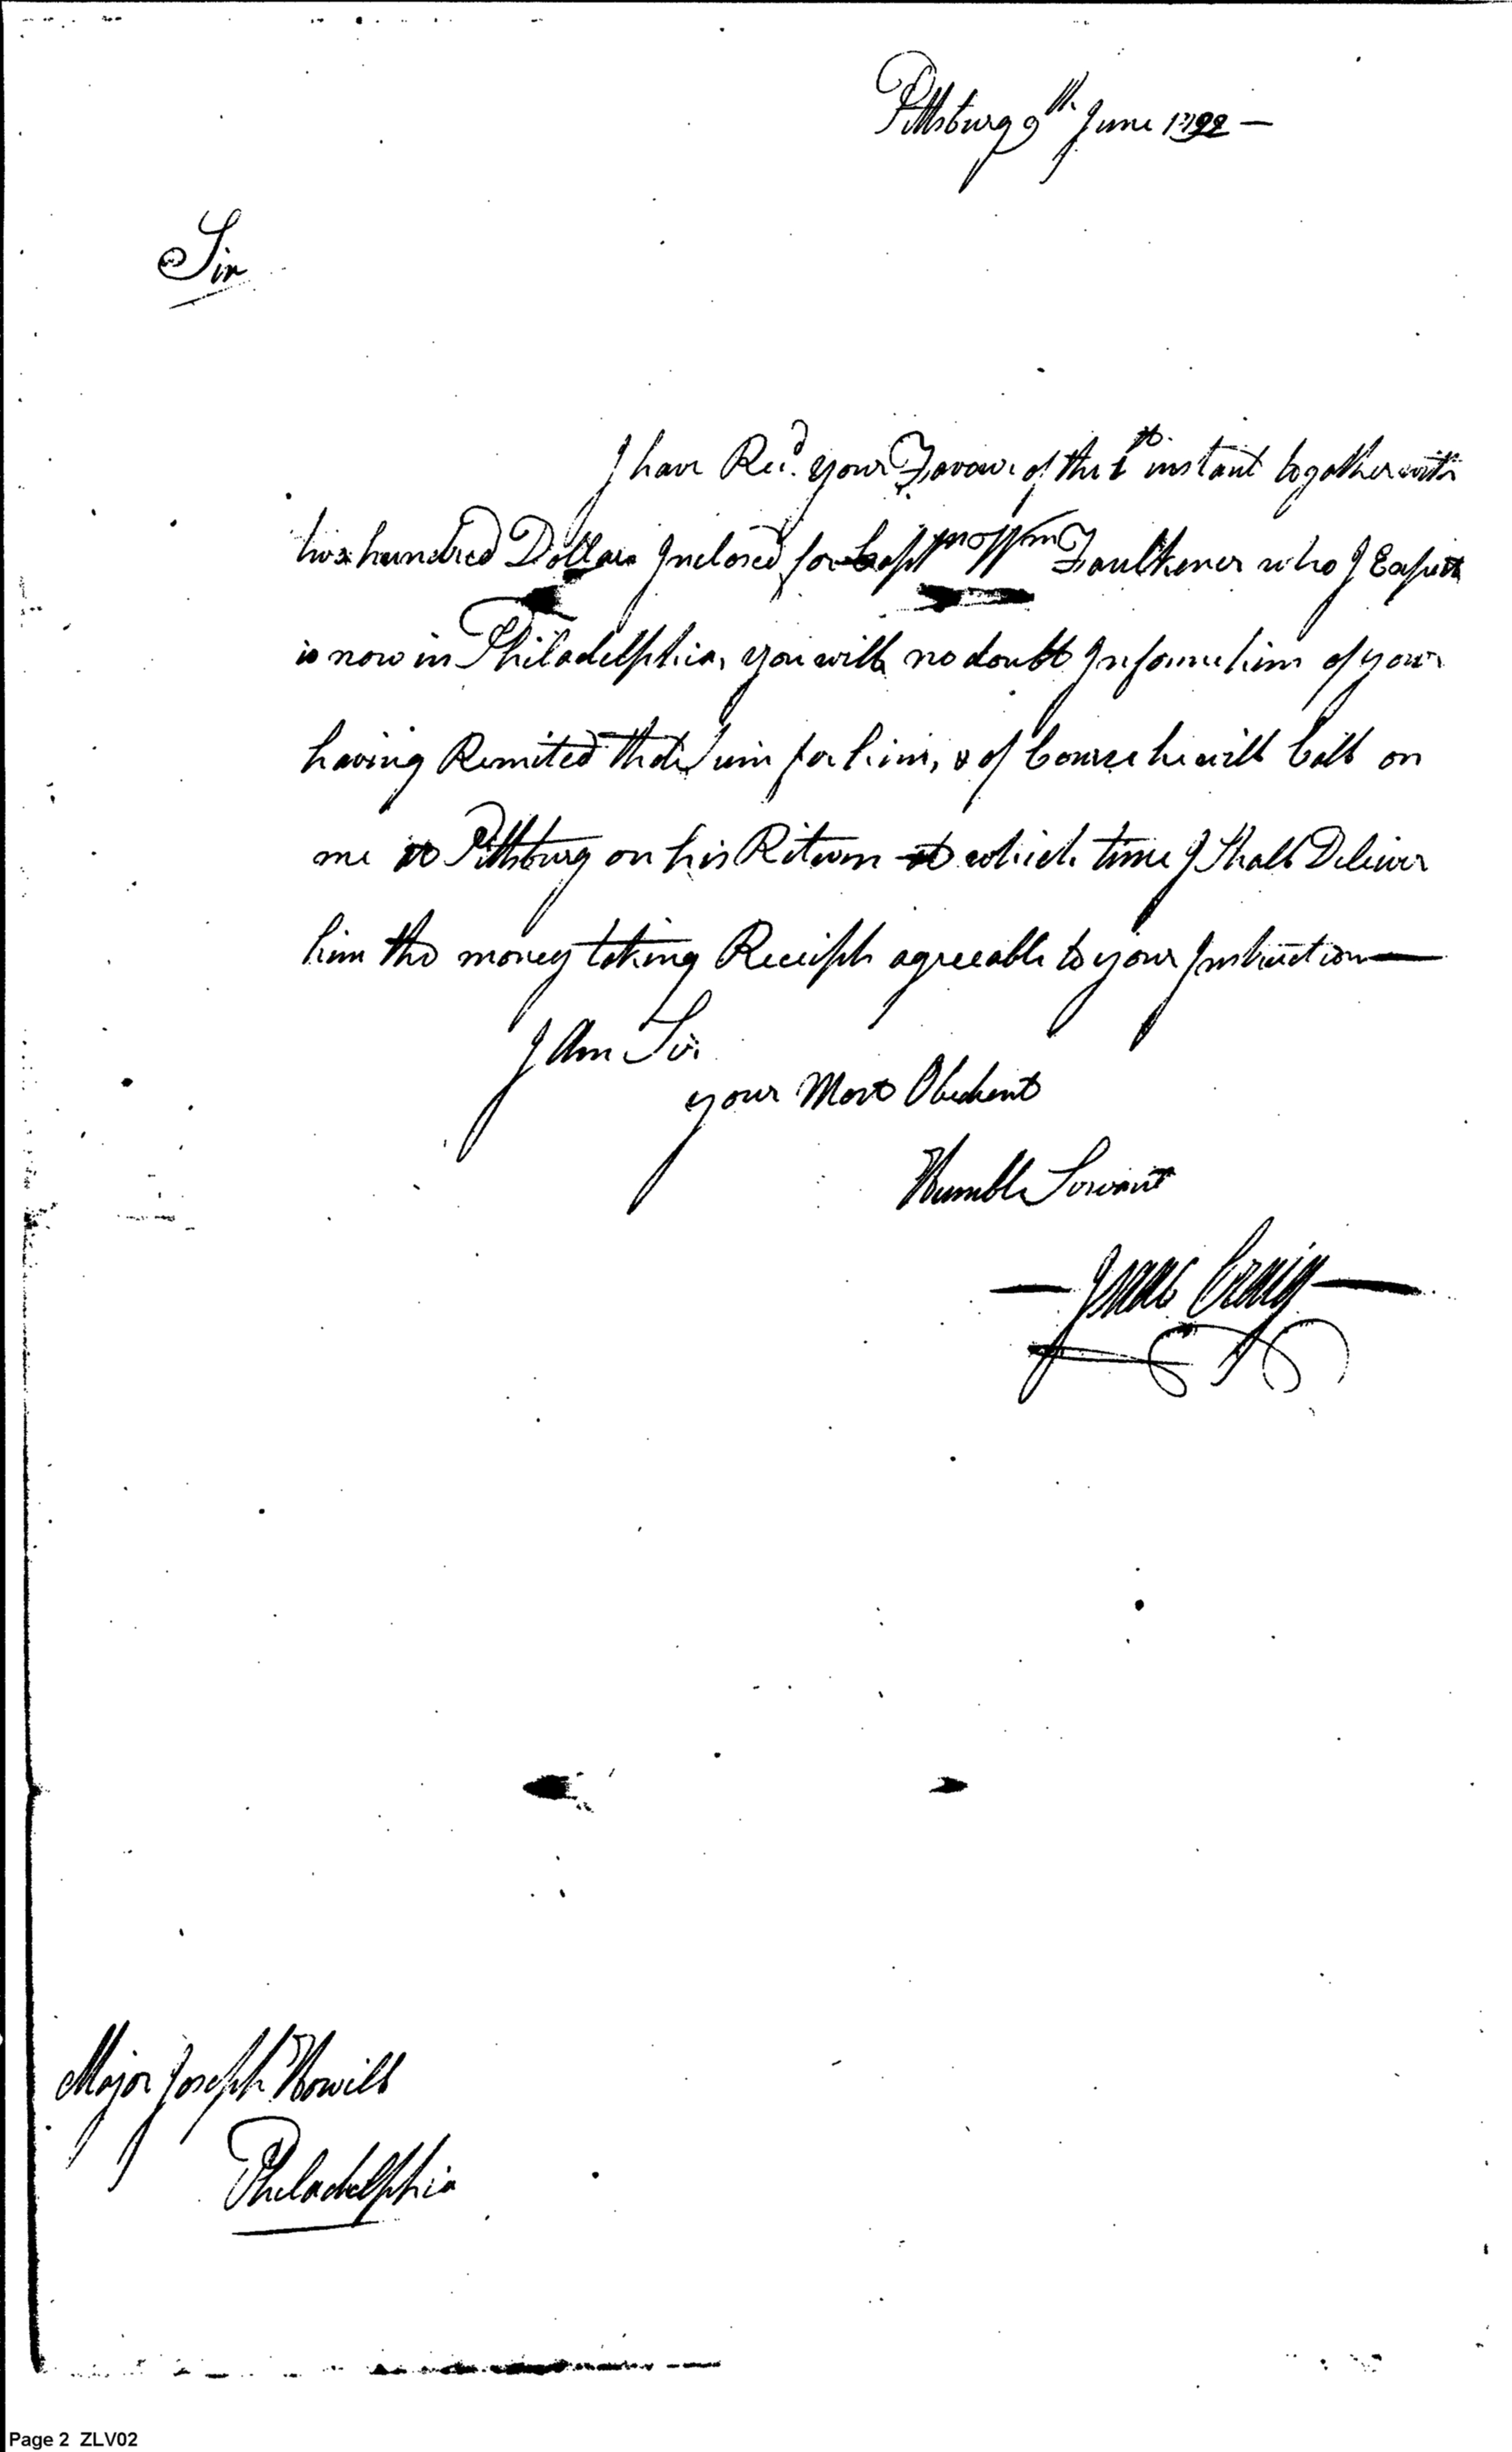 Pittsburg 9th June 1792 —
Sir
I have Recd. your Favour of the 1st instant together with
two hundred Dollars Inclosed for Capt Wm Faulkener who I Expect
is now in Philadelphia, you will no doubt Inform him of your
having Remited that Sum for him, & of Course he will Call on
me at Pittsburg on his Return at which time I Shall Deliver
him the money taking Receipts agreeable to your Instruction —
I Am Sir
your Most Obedient
Humble Servant
— Isaac Craig —
Major Joseph Howell
Philadelphia
Page 2 ZLV02